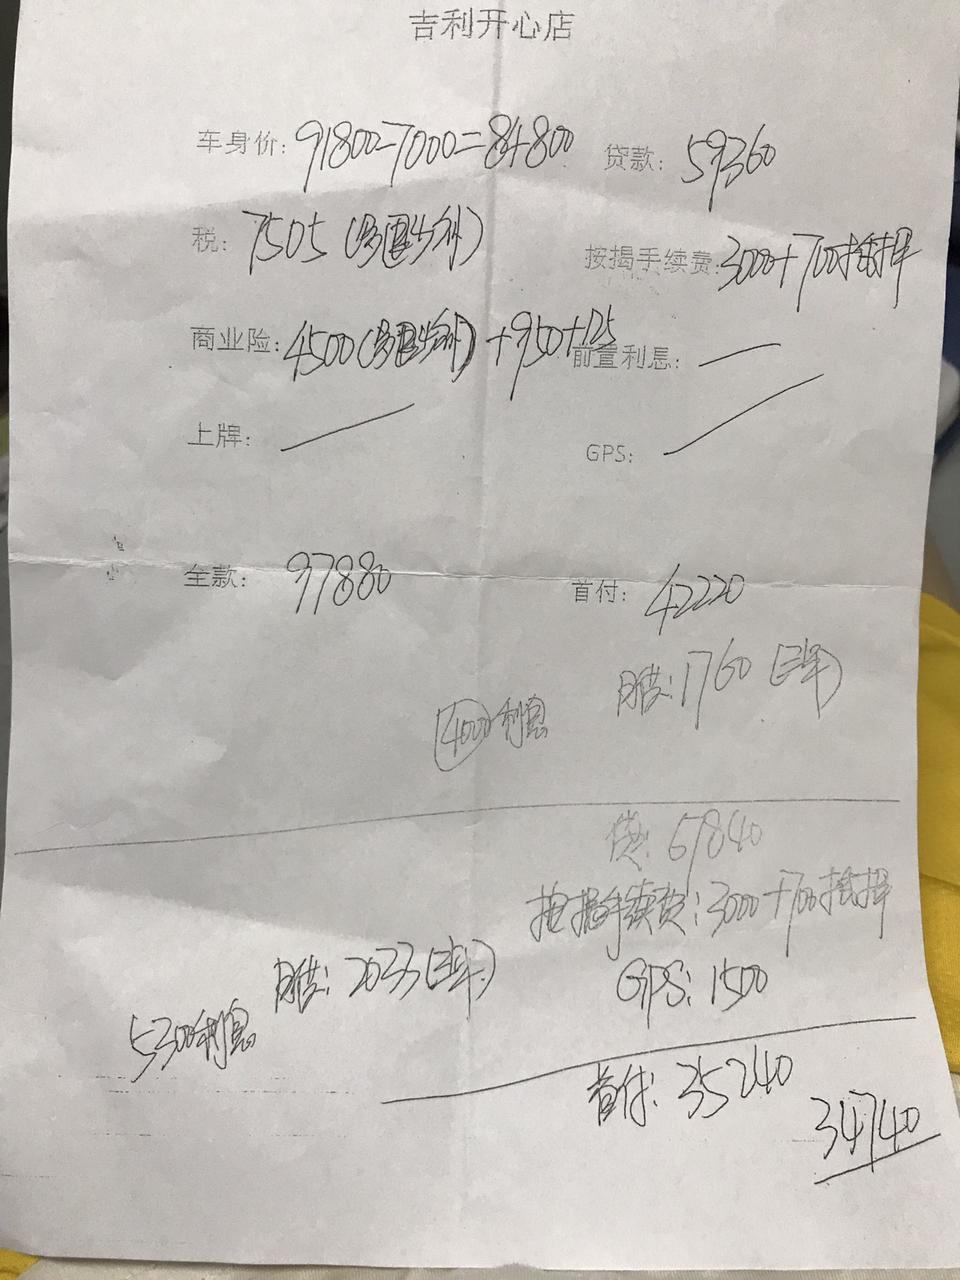 吉利开心店
车身价: 91800-7000=84800
贷款: 59360
税: 7505 (多退少补)
按揭手续费: 3000+700抵押
商业险: 4500(多退少补) +950+125
前置利息: 
上牌: 
GPS: 
全款: 97880
首付: 42220
月供: 1760 (三年)
4000利息
贷: 67840
按揭手续费: 3000+700抵押
月供: 2033(三年)
GPS: 1500
5300利息
首付: 35240
34740